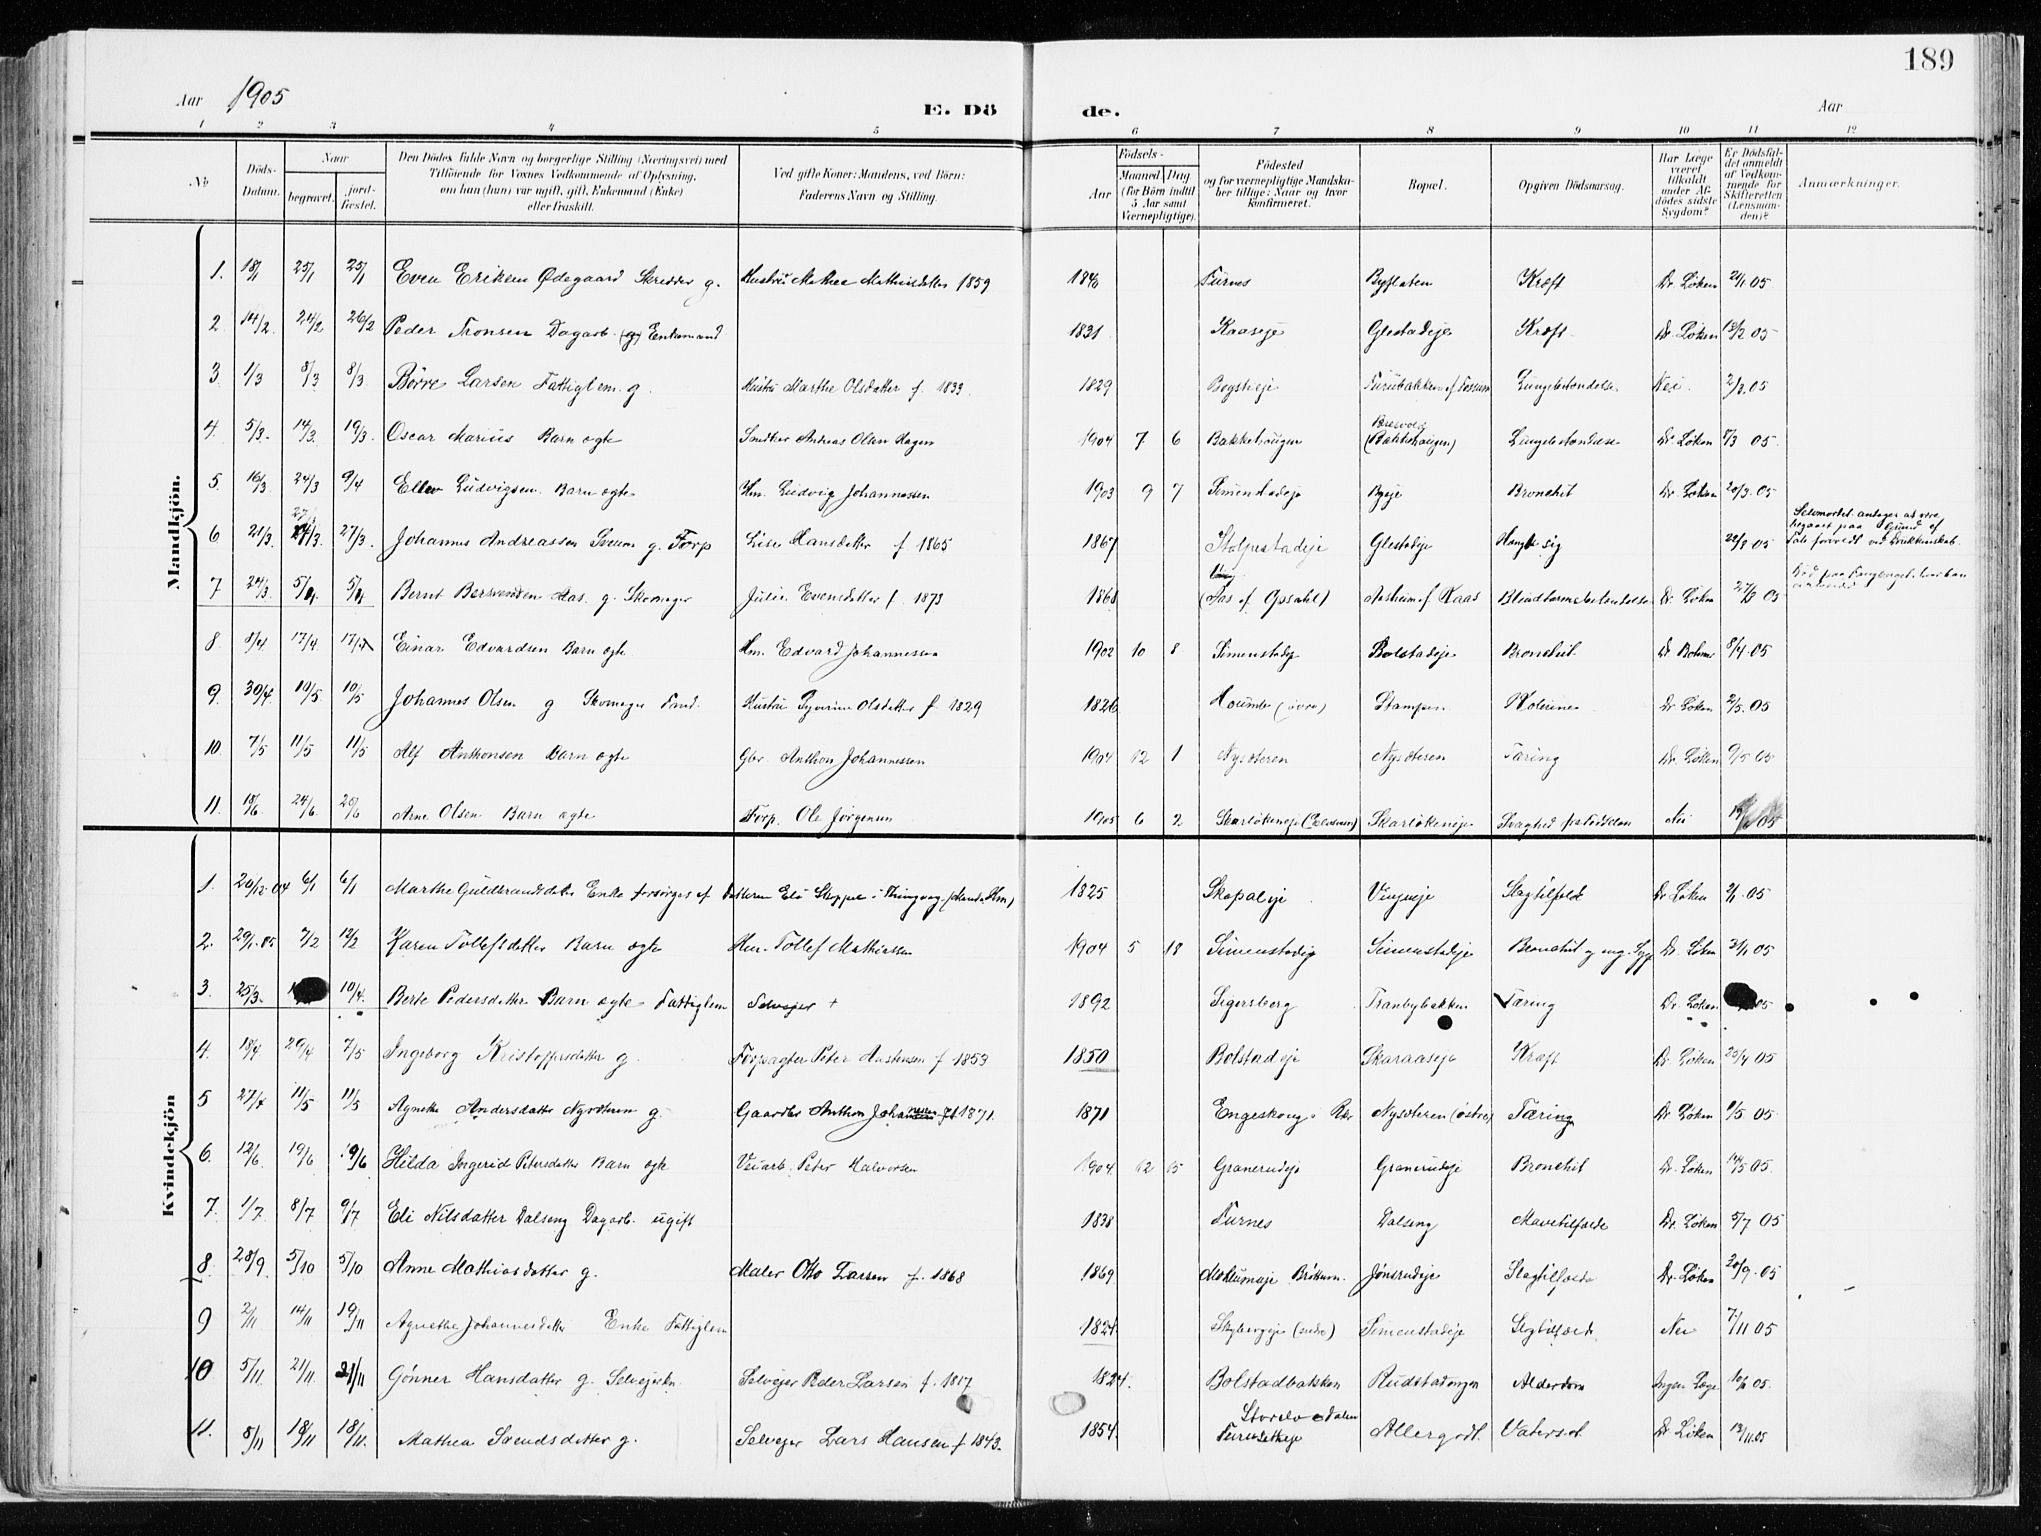 189
Aar 1905
E. Dö de.
Aar
1 2 3 4 5 6 7 8 9 10 11 12
No
Döds-Datum.
Naar
begravet.
jord-fæstet.
Den Dödes fulde Navn og borgerlige Stilling (Næringsvei) med
Tilföiende for Voxnes Vedkommende af Oplysning,
om han (hun) var ugift, gift, Enkemand (Enke)
eller fraskilt.
Ved gifte Koner: Mandens, ved Börn:
Faderens Navn og Stilling.
Födsels-
Aar
Maaned Dag
(for Börn indtil
5 Aar samt
Værnepligtige).
Födested
og for værnepligtige Mandska-
ber tillige: Naar og hvor
konfirmeret.
Bopæl.
Opgiven Dödsaarsag.
Har Læge
været
tilkaldt
under Af-
dödes sidste
Sygdom?
Er Dödsfal-
det anmeldt
af Vedkom-
mende for
Skifteretten
(Lensman-
den)?
Anmærkninger.
Mandkjön.
1. 18/1 25/1 25/1 Even Eriksen Ødegaard Skredder g. Hustru Mathea Mathisdatter 1859 1840 Furnes Byflaten Kræft Dr. Löken 21/1 05
2. 14/2 24/2 26/2 Peder Tronsen Dagarb. (g) Enkemand 1831 Kaaseje Glestadeje Kræft Dr. Löken 13/2 05
3. 1/3 8/3 8/3 Börre Larsen Fattiglem g. Hustru Marthe Olsdatter f. 1833. 1829 Bogsteje Furubakken af Fossum Lungebetændelse Nei. 2/3.05
4. 5/3. 14/3. 19/3. Oscar Marius Barn ægte Smedker Andreas Olsen Hagen 1904 7 6 Bakkehaugen (Bakkehaugen) Lungebetændelse Dr Löken 7/3 05
5. 16/3 24/3 9/4 Ellev Ludvigsen. Barn ægte Hm. Ludvig Johannessen 1903 9 7 Simenstadeje Byeje Bronchit Dr. Löken 20/3.05
6 21/3. 27/3. Johannes Andreassen Sveum g. Forp Lise Hansdatter f 1865 1867 Stolpestadeje Glestadeje Hængt sig 22/3 05 Selvmordet antages at være begaaet paa Grund af
7 24/3. 5/4 5/4 Bernt Berntsen Aas. g. Skomager Julie Evensdatter f. 1873 1868 (Aas af Opsahl) Aasheim af Kaas Blindtarmsbetændelse Dr. Löken 27/3 05
8. 8/4 17/4 17/4 Einar Edvardsen Barn ægte Hm. Edvard Johannessen 1902 10 8 Simenstadeje Bolstadeje Bronchit. 8/4 05
9. 30/4 10/5 10/5 Johannes Olsen g Skomager Hustru Olsdatter f. 1829 1826 (övre) Stampen Dr Löken 2/5.05
10. 7/5 11/5 11/5 Alf Anthonsen Barn ægte Gbr. Anthon Johannessen 1904 12 1 Nysæteren Nysæteren Tæring Dr. Löken 9/5 05
11. 18/6 24/6 25/6 Arne Olsen Barn ægte Forp. Ole Jörgensen 1905 6 2 Skarlökeneje Skarlökeneje Svaghed fra Födselen Nei 05
Kvindekjön
1. 20/12.04 6/1 6/1 Marthe Guldbrandsdatter Enke forsörges af Datteren Eli 1825 Skapaleje Vingneje Slagtilfælde Dr Löken 2/1.05
2. 29/1.05 7/2 12/2 Karen Tollefsdatter Barn ægte Hm. Tollef Mathiassen 1904 5 18 Simenstadeje Simenstadeje Bronchit og Dr. Löken 31/1 05
3. 25/3. 10/4. Berte Pedersdatter Barn ægte Fattiglem Selvejer + 1892 Segersberg Tranbybakken Tæring Dr. Löken 05
4. 18/4 29/4 7/5 Ingeborg Kristoffersdatter g. Forpagter Peter Austensen f 1853 1850 Bolstadeje Skaraaseje Kræft Dr. Löken 25/4 05
5 27/4 11/5 11/5 Agnethe Andersdatter Nysæteren g. Gaardbr Anthon Johannessen f. 1871. 1871 Engeskoug i Nysæteren (östre) Tæring Dr Löken 9/5 05
6. 12/6. 19/6 19/6 Hilda Ingerid Petersdatter Barn ægte Veiarb. Peter Halvorsen 1904 12 15 Granerudeje Granerudeje Bronchit Dr. Löken 14/5 05.
7. 1/7 8/7 9/7 Eli Nilsdatter Dalseng Dagarb. ugift 1838 Furnes Dalseng Mavetilfælde Dr. Löken 5/7 05
8. 28/9. 5/10 5/10 Anne Mathiasdatter g. Maler Otto Larsen f. 1868 1869 Brökum. Jönsrudeje Slagtilfælde Dr. Löken 29/9.05
9 2/11 14/11 19/11 Agnethe Johannesdatter Enke Fattiglem 1824. Skybergeje (nedre) Simenstadeje Slagtilfælde. Nei 7/11 05
10 5/11 21/11. 21/11 Gönner Hansdatter g. Selvejerkn. Selvejer Peder Larsen f. 1817 1824. Bolstadbakken Rudstadengen Alderdom Ingen Læge 10/11 05.
11. 8/11 18/11 18/11. Mathea Svendsdatter g. Selvejer Lars Hansen f 1843. 1854. Furusetheje Allergodt. Vatersot Dr Löken 13/11.05